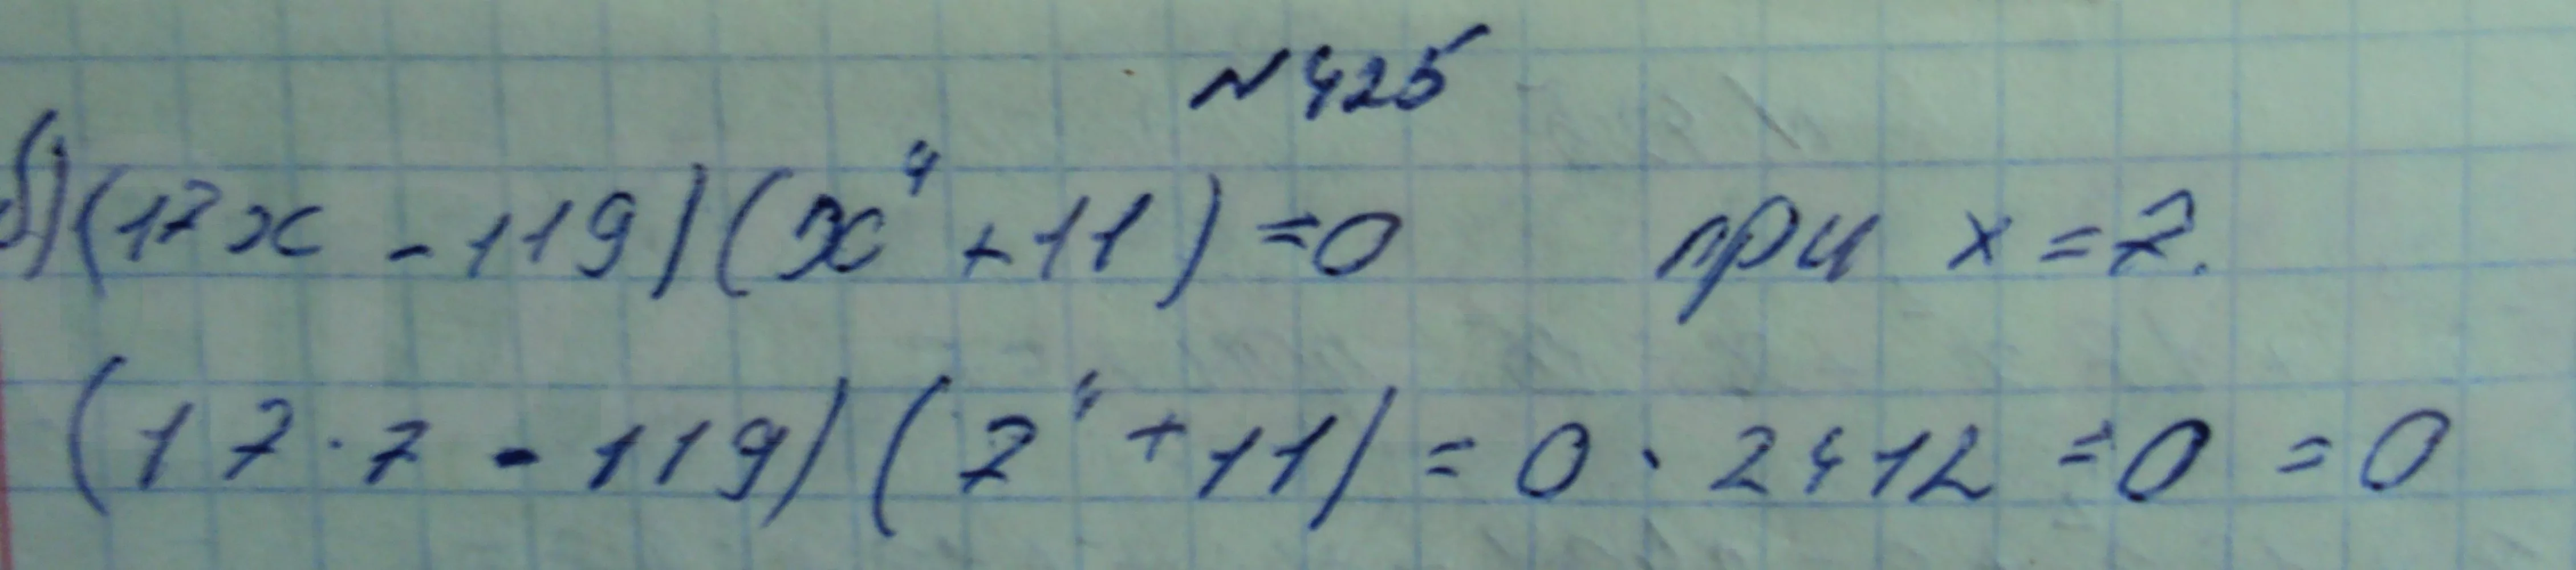 №425
б) (17x - 119)(x⁴ + 11) = 0 при x = 7.
(17·7 - 119)(7⁴ + 11) = 0 · 2412 = 0 = 0